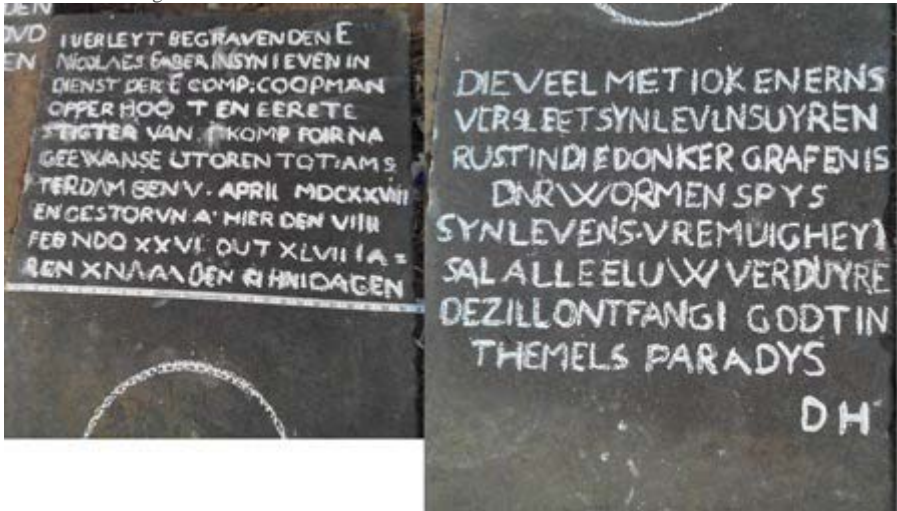 DEN
OVD
EN
I VERLEYT BEGRAVEN DEN E
NICOLAES EMBER INSYN IEVEN IN
DIENST DER E COMP: COOPMAN
OPPER HOO T EN EERETE
STIGTER VAN KOMP FOIRNA
GEEWANSE UTOREN TOT: AMS
TERDAM BEN V. APRIL MDCXXVIII
EN GESTORVN A' HIER DEN VIIII
FEB NDO XXVI OUT XLVII IA=
REN XNAA DEN DAGEN
DIE VEEL MET IOK EN ERNS
VERSLEET SYN LEVLN SUYREN
RUST IN DIE DONKER GRAF EN IS
DNR WORMEN SPYS
SYN LEVENS-VREMUIGHEYT
SAL ALLE ELUW VERDUYRE
DE ZILL ONTFANGI GODT IN
THEMELS PARADYS
D H